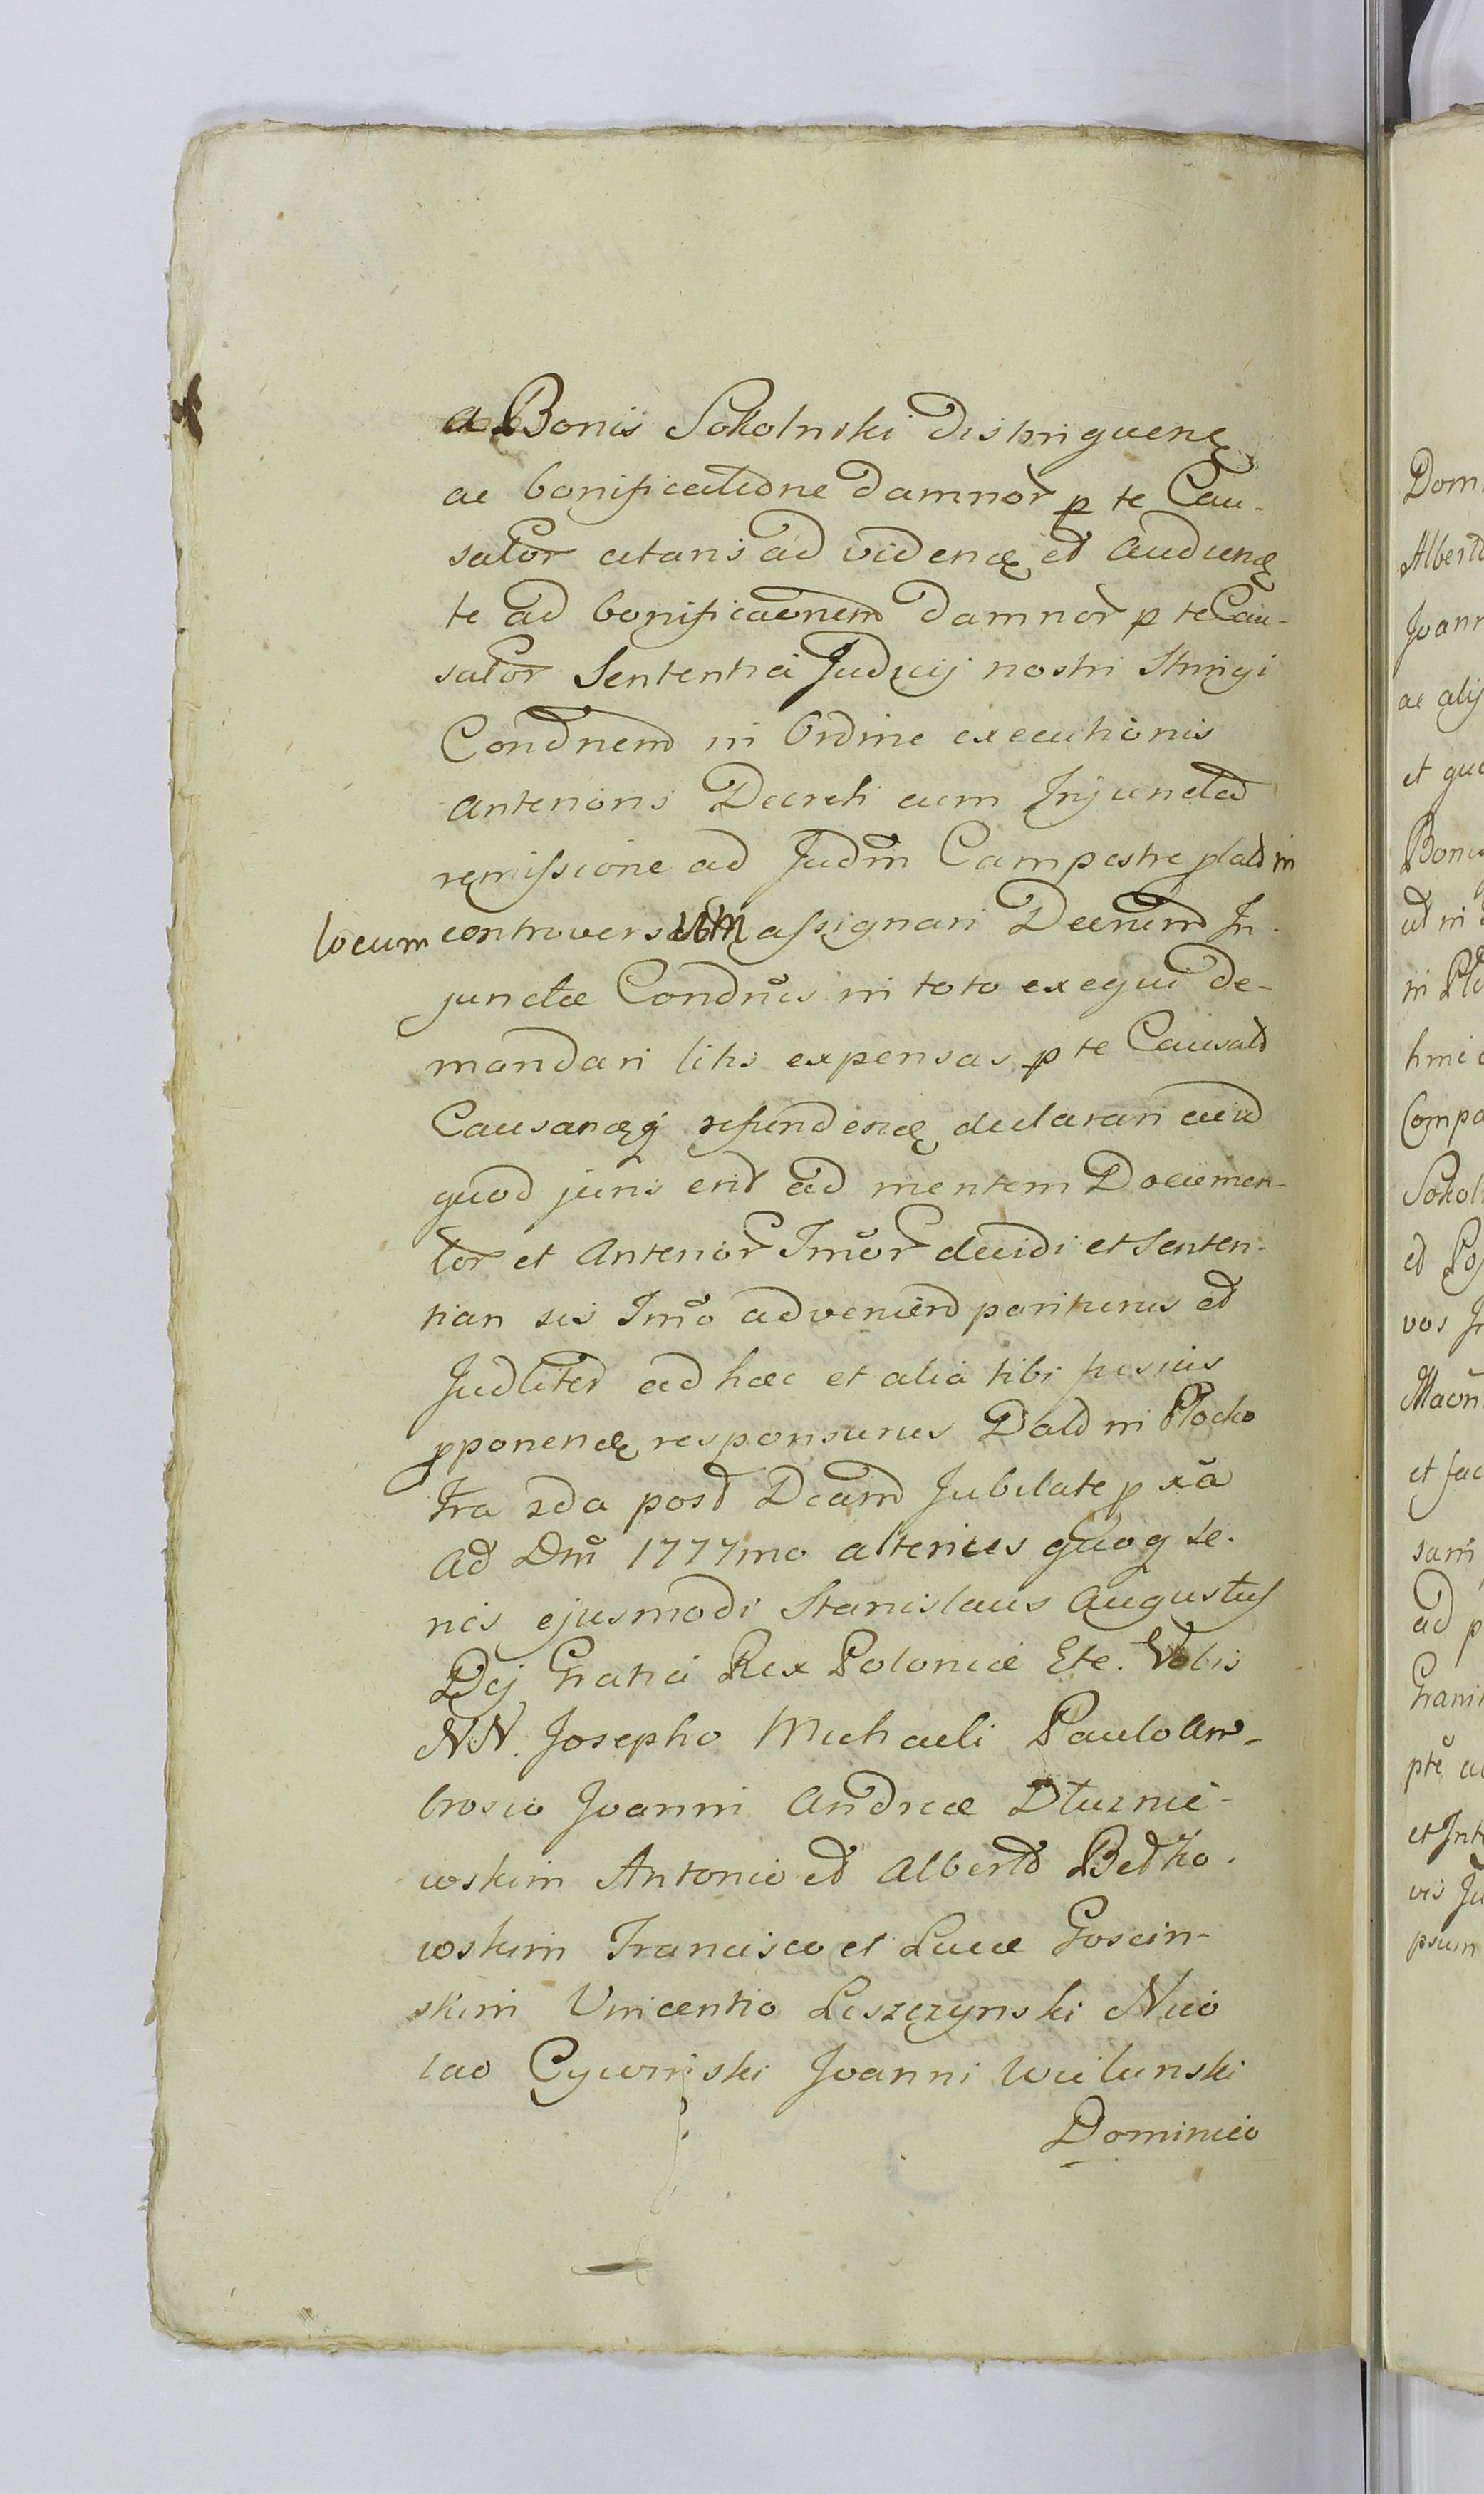 a Bonis Sokolniki distringuend
ac bonificatione damnor p te Cau-
sator citaris ad videnđ et audiend
te ad bonificaonem damnor p te Cau-
sator Sententia Judicij nostri Stringi
Condnem in Ordine executionis
anterioris Decreti cum Injuncta
remissione ad Judm Campestre
locum controversum assignari Decretum In-
junctæ Condnis in toto exequi de-
mandari litis expensas p te Causat
Causandq refundend declarari aliud
quod juris erit ad mentem Documen-
tor et anterior Tmor decidi et Senten-
tian sis Tmo adveniend pariturus et
Judliter ad hæc et alia tibi fusius
pponend responsurus Dat in Plocko
Fra 2da post Dcam Jubilate p xa
Ad Dm 1777mo alterius quoq te-
noris ejusmodi Stanislaus Augustus
Dej Gratia Rex Poloniæ Etc. Vobis
NN. Josepho Michaeli Paulo Am-
brosio Joanni Andreæ Dłuznie-
wskim Antonio et Alberto Bełżko-
wskim Francisco et Lucæ Goscin-
skim Vincentio Leszczynski Nico
lao Cywinski Joanni Wielunski
Dominico
Dom
Alberto
Joann
ac alij
et quo
Boni
ut in
in Pło
Compa
Sokol
et Po
vos
et fac
sam
ad p
et Int
psum